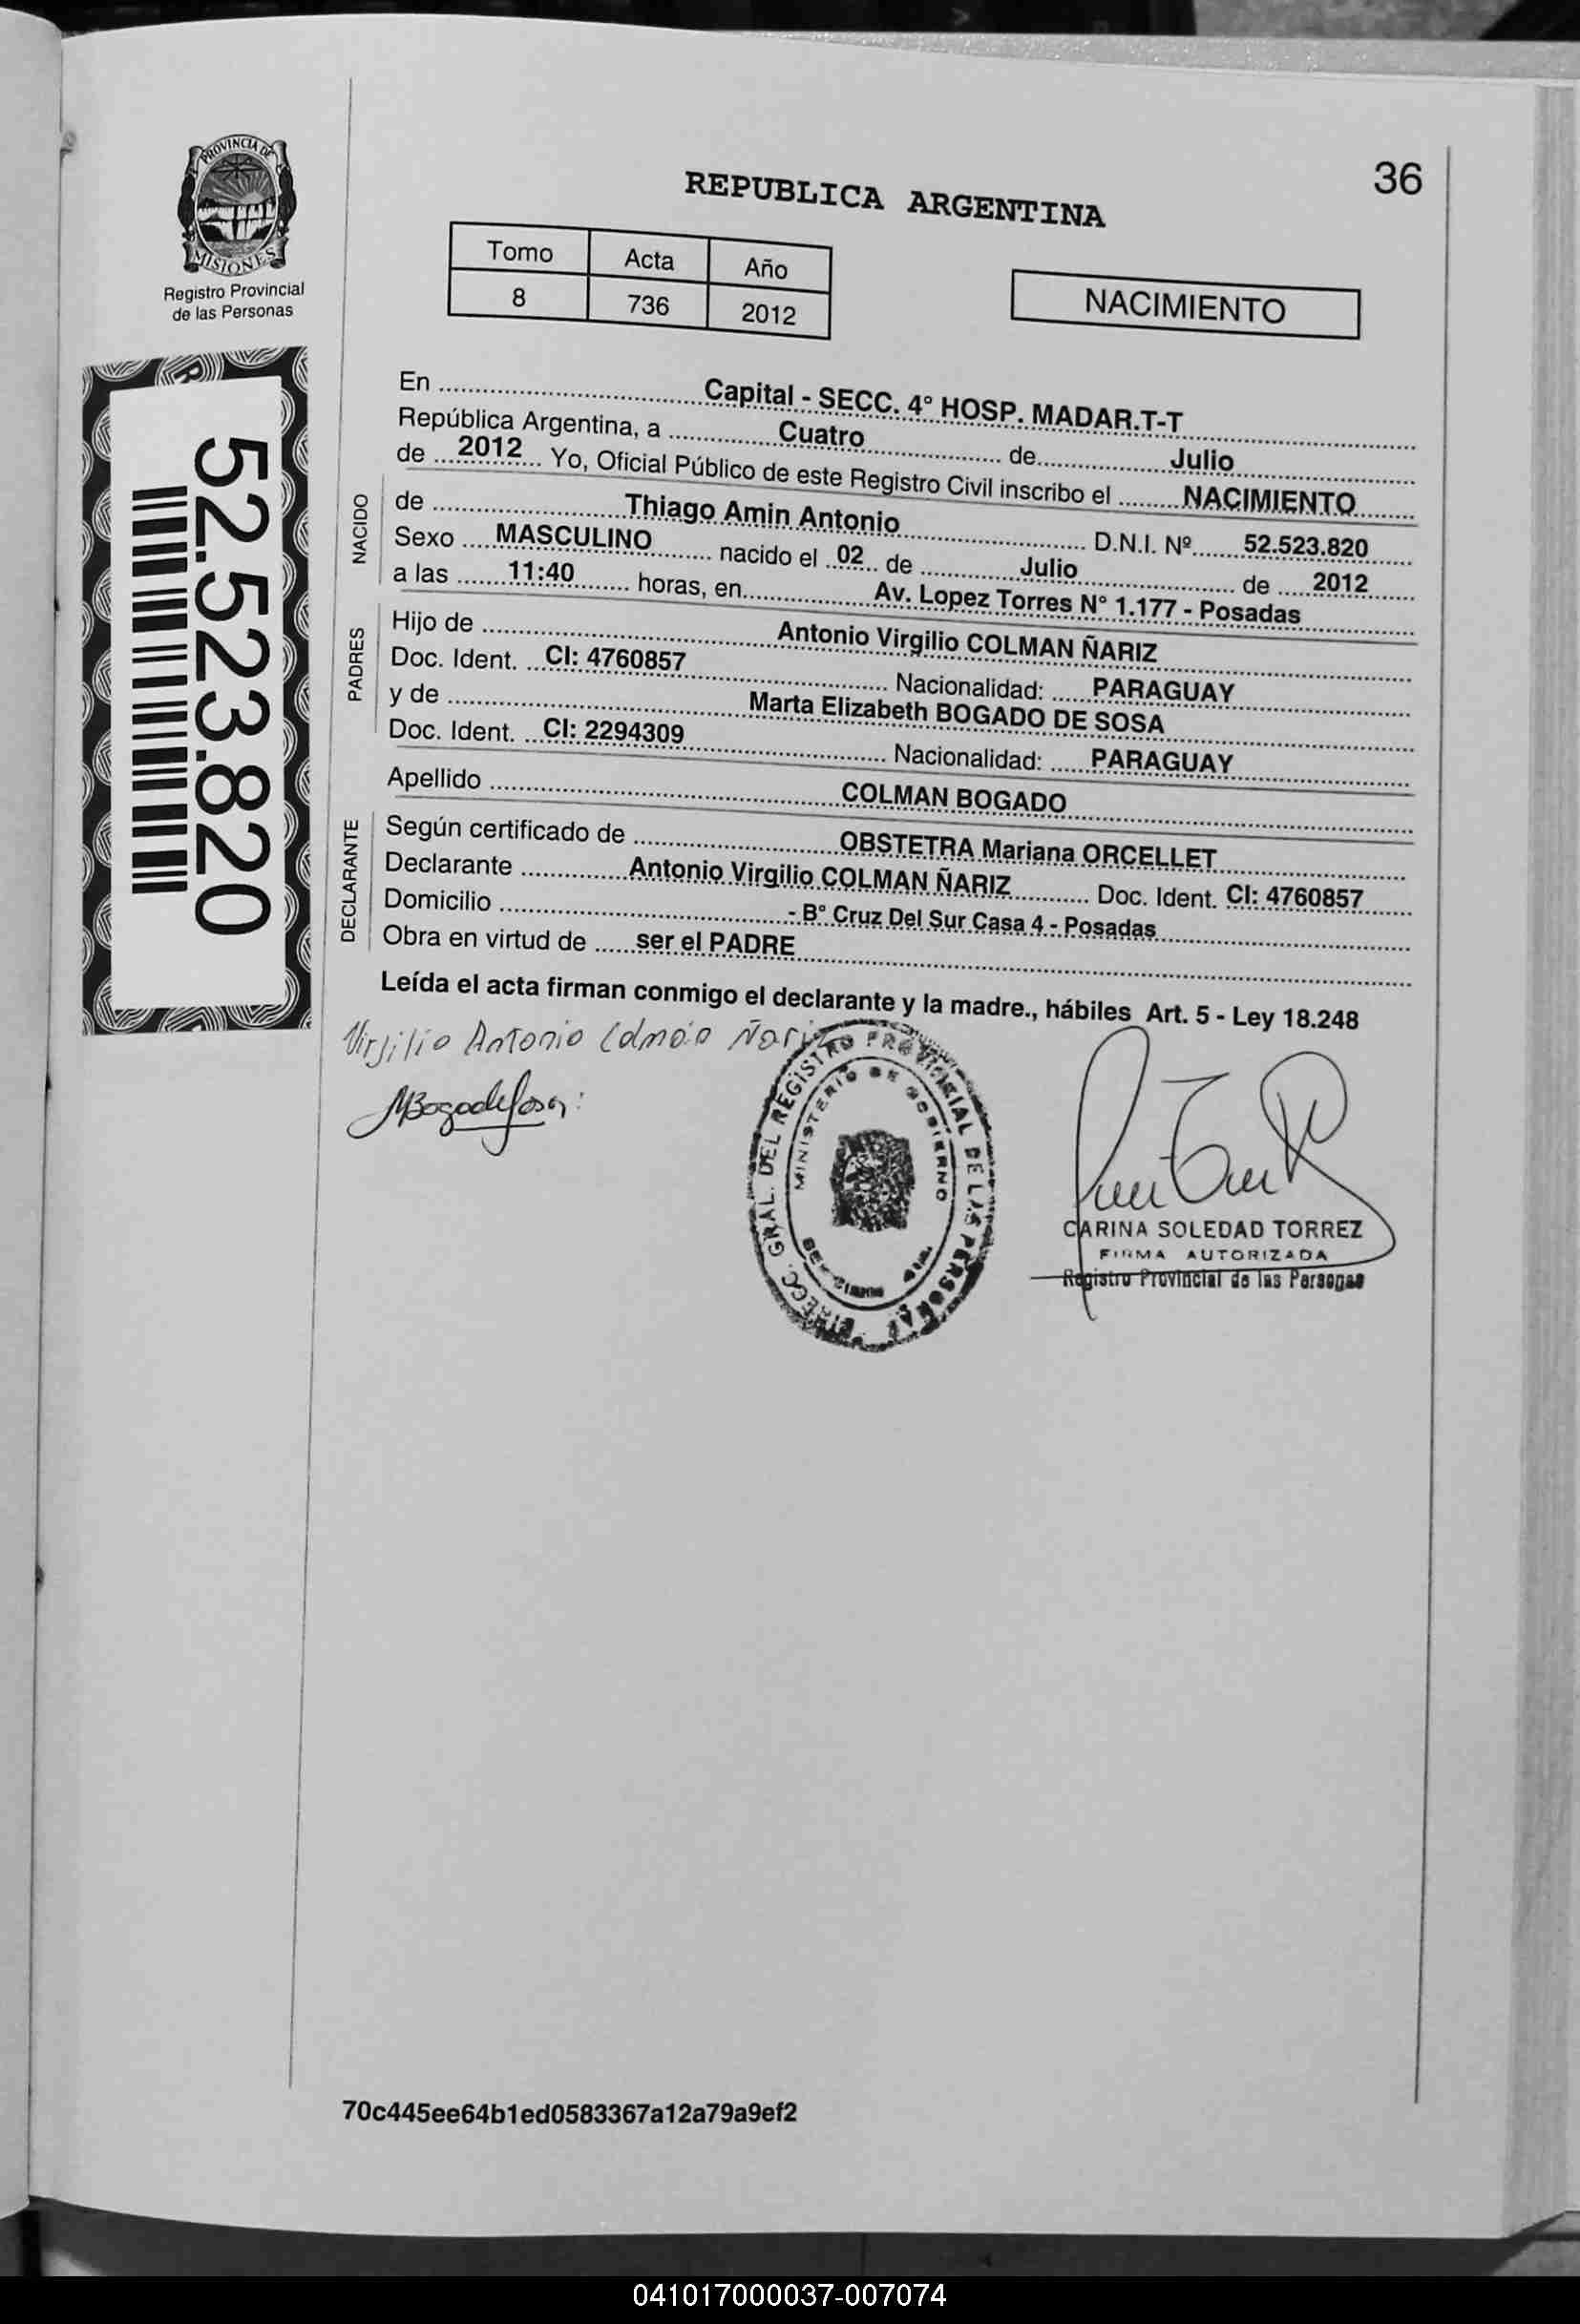 PROVINCIA DE
MISIONES
Registro Provincial
de las Personas
52.523.820
36
REPUBLICA ARGENTINA
Tomo Acta Año
8 736 2012
NACIMIENTO
En Capital - SECC. 4° HOSP. MADAR.T-T
República Argentina, a Cuatro de Julio
de 2012 Yo, Oficial Público de este Registro Civil inscribo el NACIMIENTO
NACIDO
de Thiago Amin Antonio D.N.I. Nº 52.523.820
Sexo MASCULINO nacido el 02 de Julio de 2012
a las 11:40 horas, en Av. Lopez Torres N° 1.177 - Posadas
PADRES
Hijo de Antonio Virgilio COLMAN ÑARIZ
Doc. Ident. CI: 4760857 Nacionalidad: PARAGUAY
y de Marta Elizabeth BOGADO DE SOSA
Doc. Ident. CI: 2294309 Nacionalidad: PARAGUAY
Apellido COLMAN BOGADO
DECLARANTE
Según certificado de OBSTETRA Mariana ORCELLET
Declarante Antonio Virgilio COLMAN ÑARIZ Doc. Ident. CI: 4760857
Domicilio - B° Cruz Del Sur Casa 4 - Posadas
Obra en virtud de ser el PADRE
Leída el acta firman conmigo el declarante y la madre., hábiles Art. 5 - Ley 18.248
Virjilio Antonio Colmán Ñariz
DIRECC. GRAL. DEL REGISTRO PROVINCIAL DE LAS PERSONAS
MINISTERIO DE GOBIERNO
CARINA SOLEDAD TORREZ
FIRMA AUTORIZADA
Registro Provincial de las Personas
70c445ee64b1ed0583367a12a79a9ef2
041017000037-007074